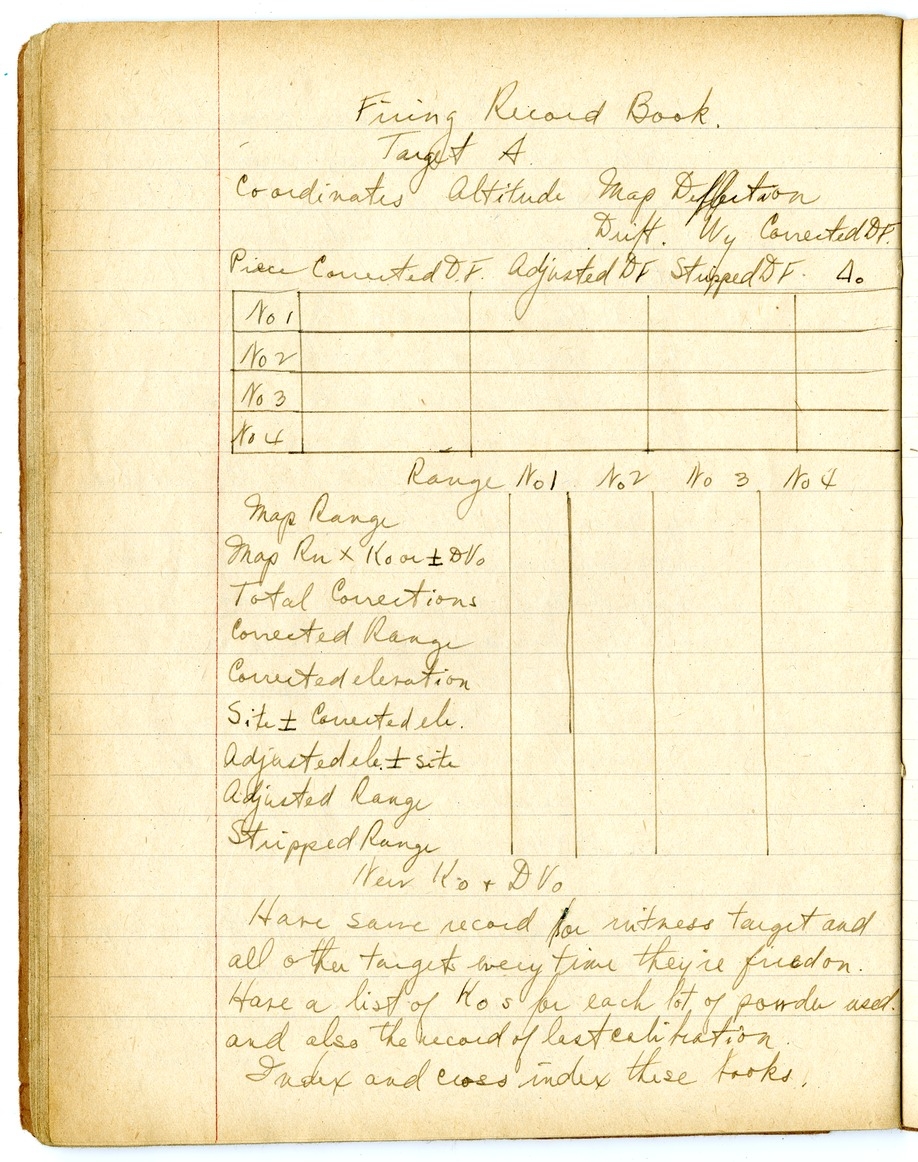 Firing Record Book.
Target A
Coordinates Altitude Map Deflection
Drift. Wy Corrected DF.
Piece Corrected D.F. Adjusted DF Stripped DF. Δo
No 1
No 2
No 3
No 4
Range No 1 No 2 No 3 No 4
Map Range
Map Rn x Ko or ± DVo
Total Corrections
Corrected Range
Corrected elevation
Site ± Corrected ele.
Adjusted ele. ± site
Adjusted Range
Stripped Range
New Ko + DVo
Have same record for witness target and
all other targets every time they're fired on.
Have a list of Ko s for each lot of powder used.
and also the record of last calibration.
Index and cross index these books.